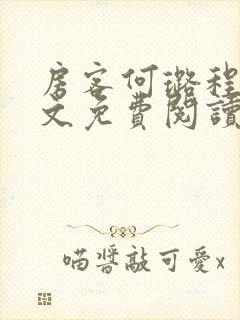 房客何璐程
文免費閱讀
喵醬敲可愛x